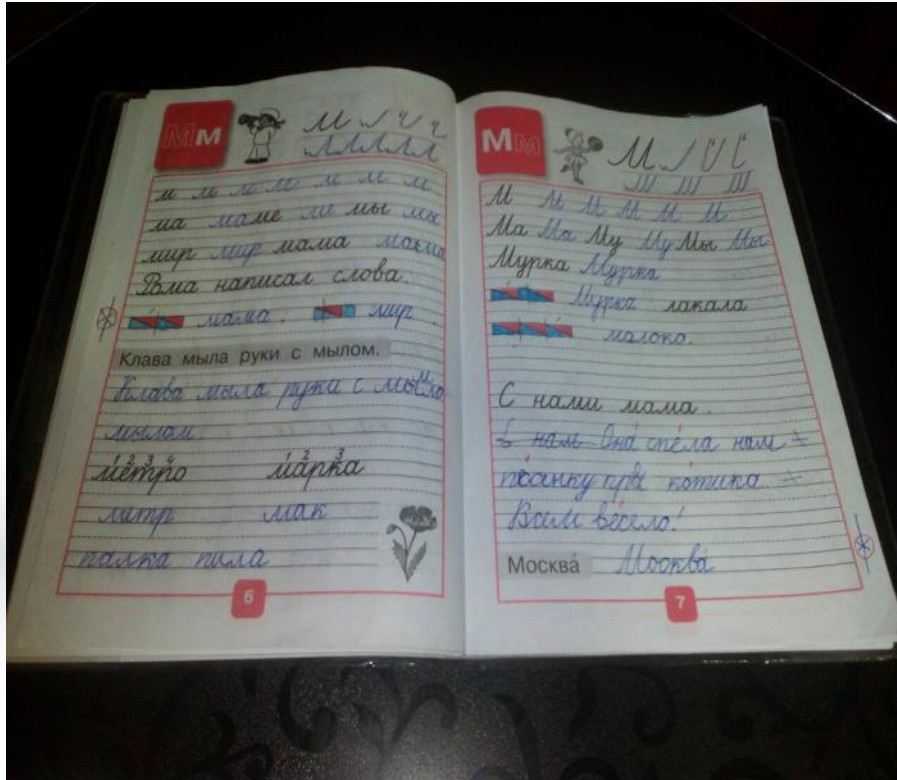 Мм
м л г ч
лллллл
м м м м м м м
ма маме ме мы мы
мир мир мама мама
Рома написал слова.
мама. мир.
Клава мыла руки с мылом.
Клава мыла руки с
мылом
1 2 3 4 1 2 3
метро марка
метр мак
палка пила
6
Мм
М
М М М М М М
Ма Ма Му Му Мы Мы
Мурка Мурка
Мурка лакала
молоко.
С нами мама.
нам Она спе́ла нам
котика.
Всем ве́село!
Москва́ Москва́
7